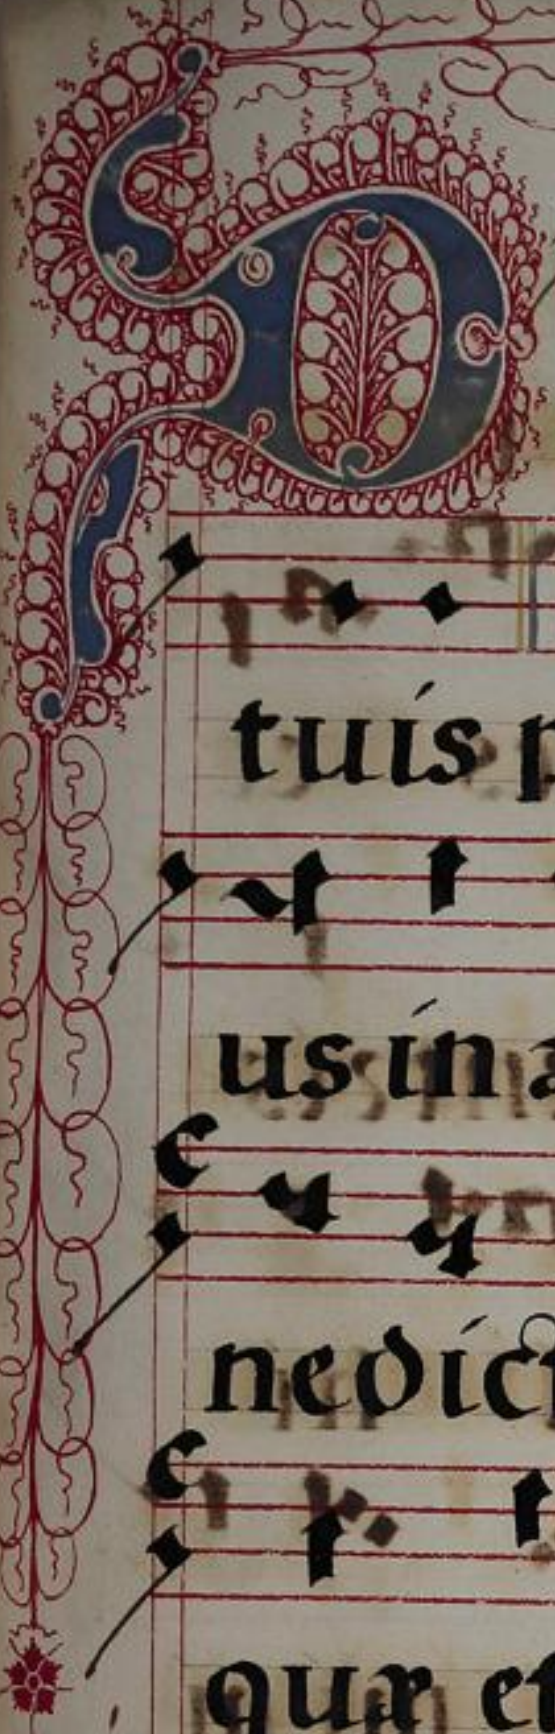 D
tuis p
us in a
nedict
quæ et